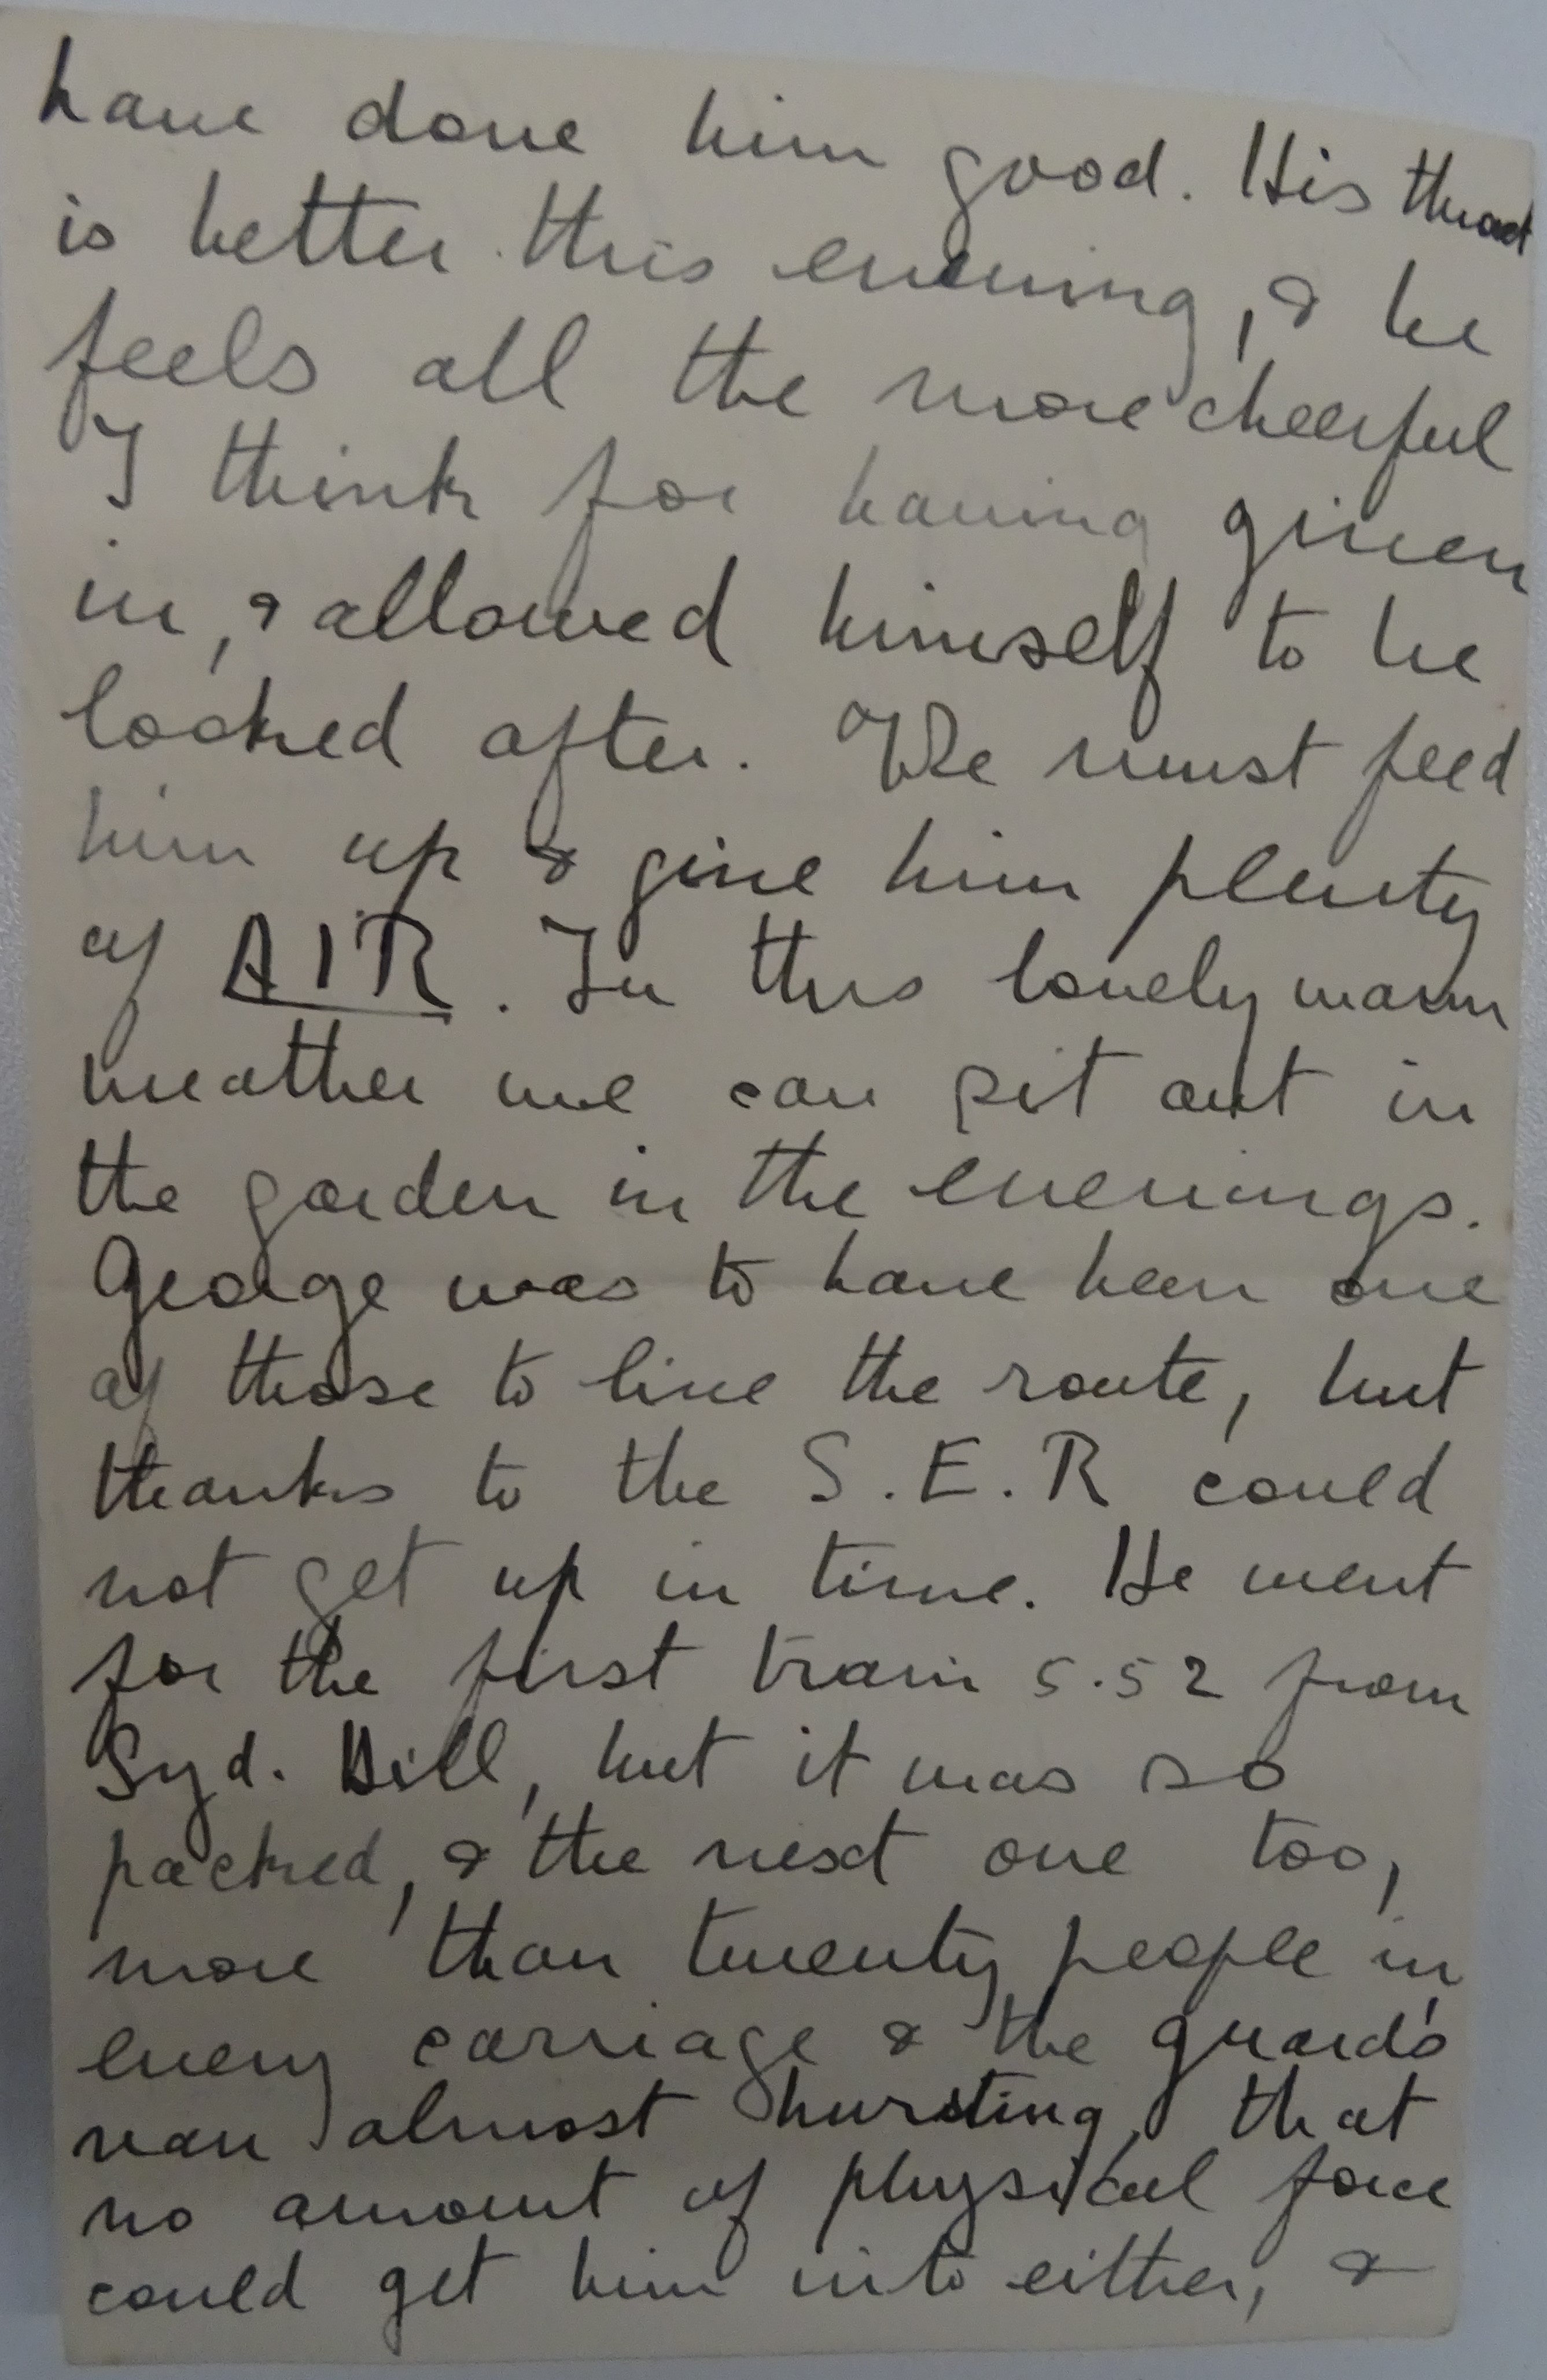 have done him good. His throat
is better this evening, & he
feels all the more cheerful
I think for having given
in, & allowed himself to be
looked after. We must feed
him up & give him plenty
of AIR. In this lovely warm
weather we can sit out in
the garden in the evenings.
George was to have been one
of those to line the route, but
thanks to the S.E.R could
not get up in time. He went
for the first train 5.52 from
Syd. Hill, but it was so
packed, & the next one too,
more than twenty people in
every carriage & the guard's
van almost bursting, that
no amount of physical force
could get him into either, &